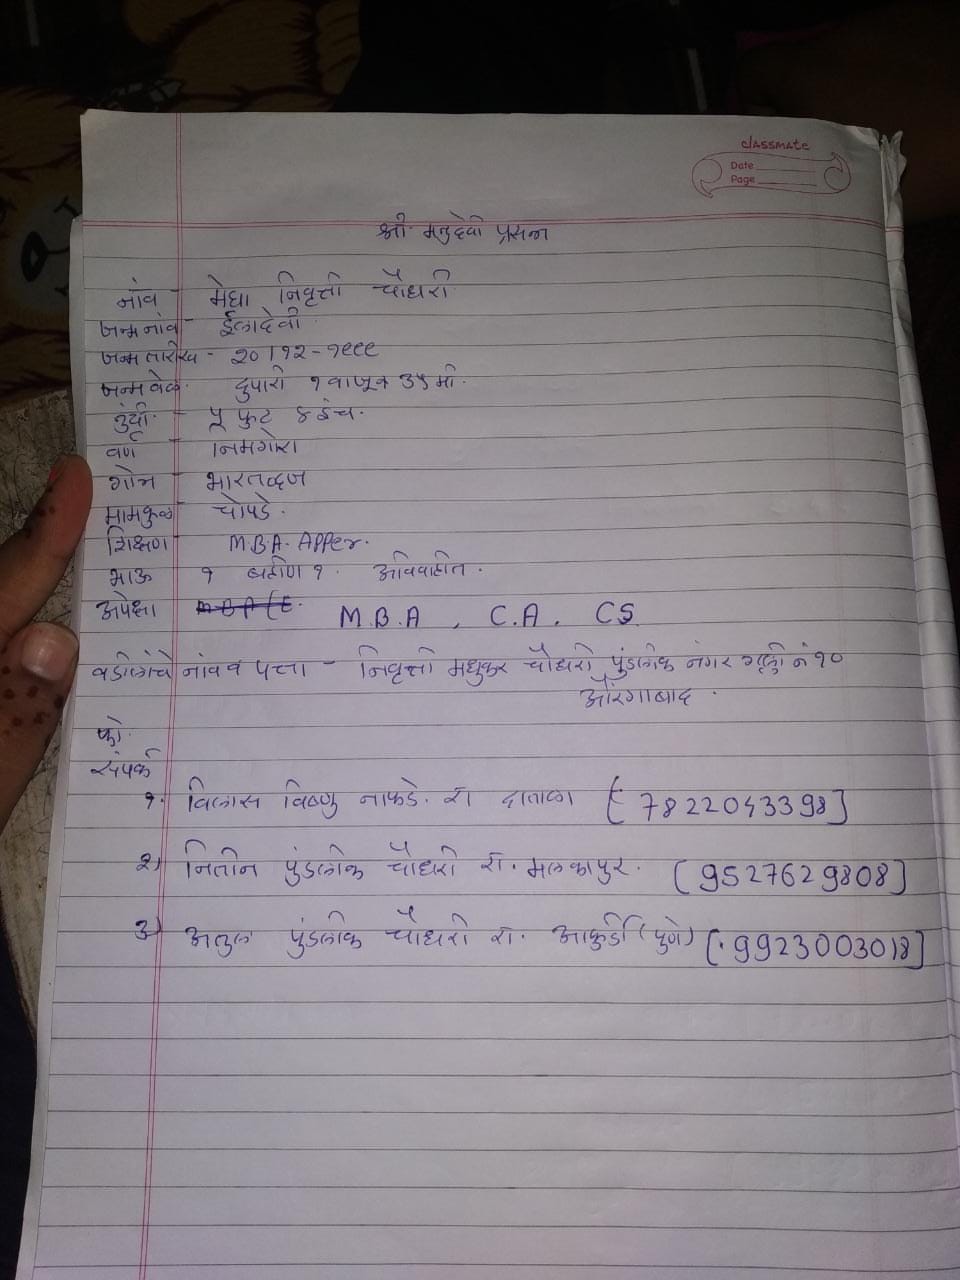 classmate
Date
Page
श्री. मनुदेवी प्रसन्न
नांव - मेघा निवृत्ती चौधरी
जन्मनांव - ईलादेवी
जन्मतारीख - २०।१२-१९९९
जन्मवेळ दुपारी १ वाजून ३५ मी.
उंची - ५ फुट ४ इंच.
वर्ण - निमगोरा
गोत्र - भारतद्वज
मामकुळ - चोपडे.
शिक्षण - M.B.A. Apper.
भाऊ १ बहीण १. अविवाहीत.
अपेक्षा M.B.A , C.A, CS
वडीलांचे नांव व पत्ता - निवृत्ती मधुकर चौधरी पुंडलीक नगर गल्ली नं १०
औरंगाबाद.
फो.
संपर्क
१. विलास विष्णु नाफडे. रा दाताळा [7822043398]
२) नितीन पुंडलीक चौधरी रा. मलकापुर. [9527629808]
३) अतुल पुंडलीक चौधरी रा. आकुर्डी (पुणे) [9923003018]